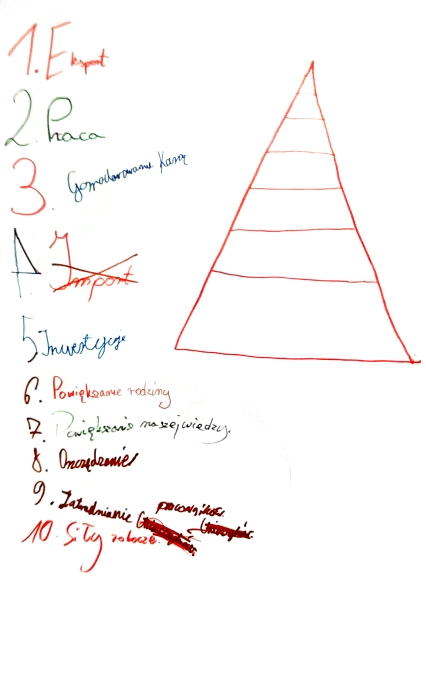 1. Eksport
2. Praca
3. Gospodarowanie Kasą
4. Import
5. Inwestycje
6. Powiększanie rodziny
7. Powiększanie naszej wiedzy.
8. Oszczędzanie
9. Zatrudnianie pracowników
10. Siły robocze.